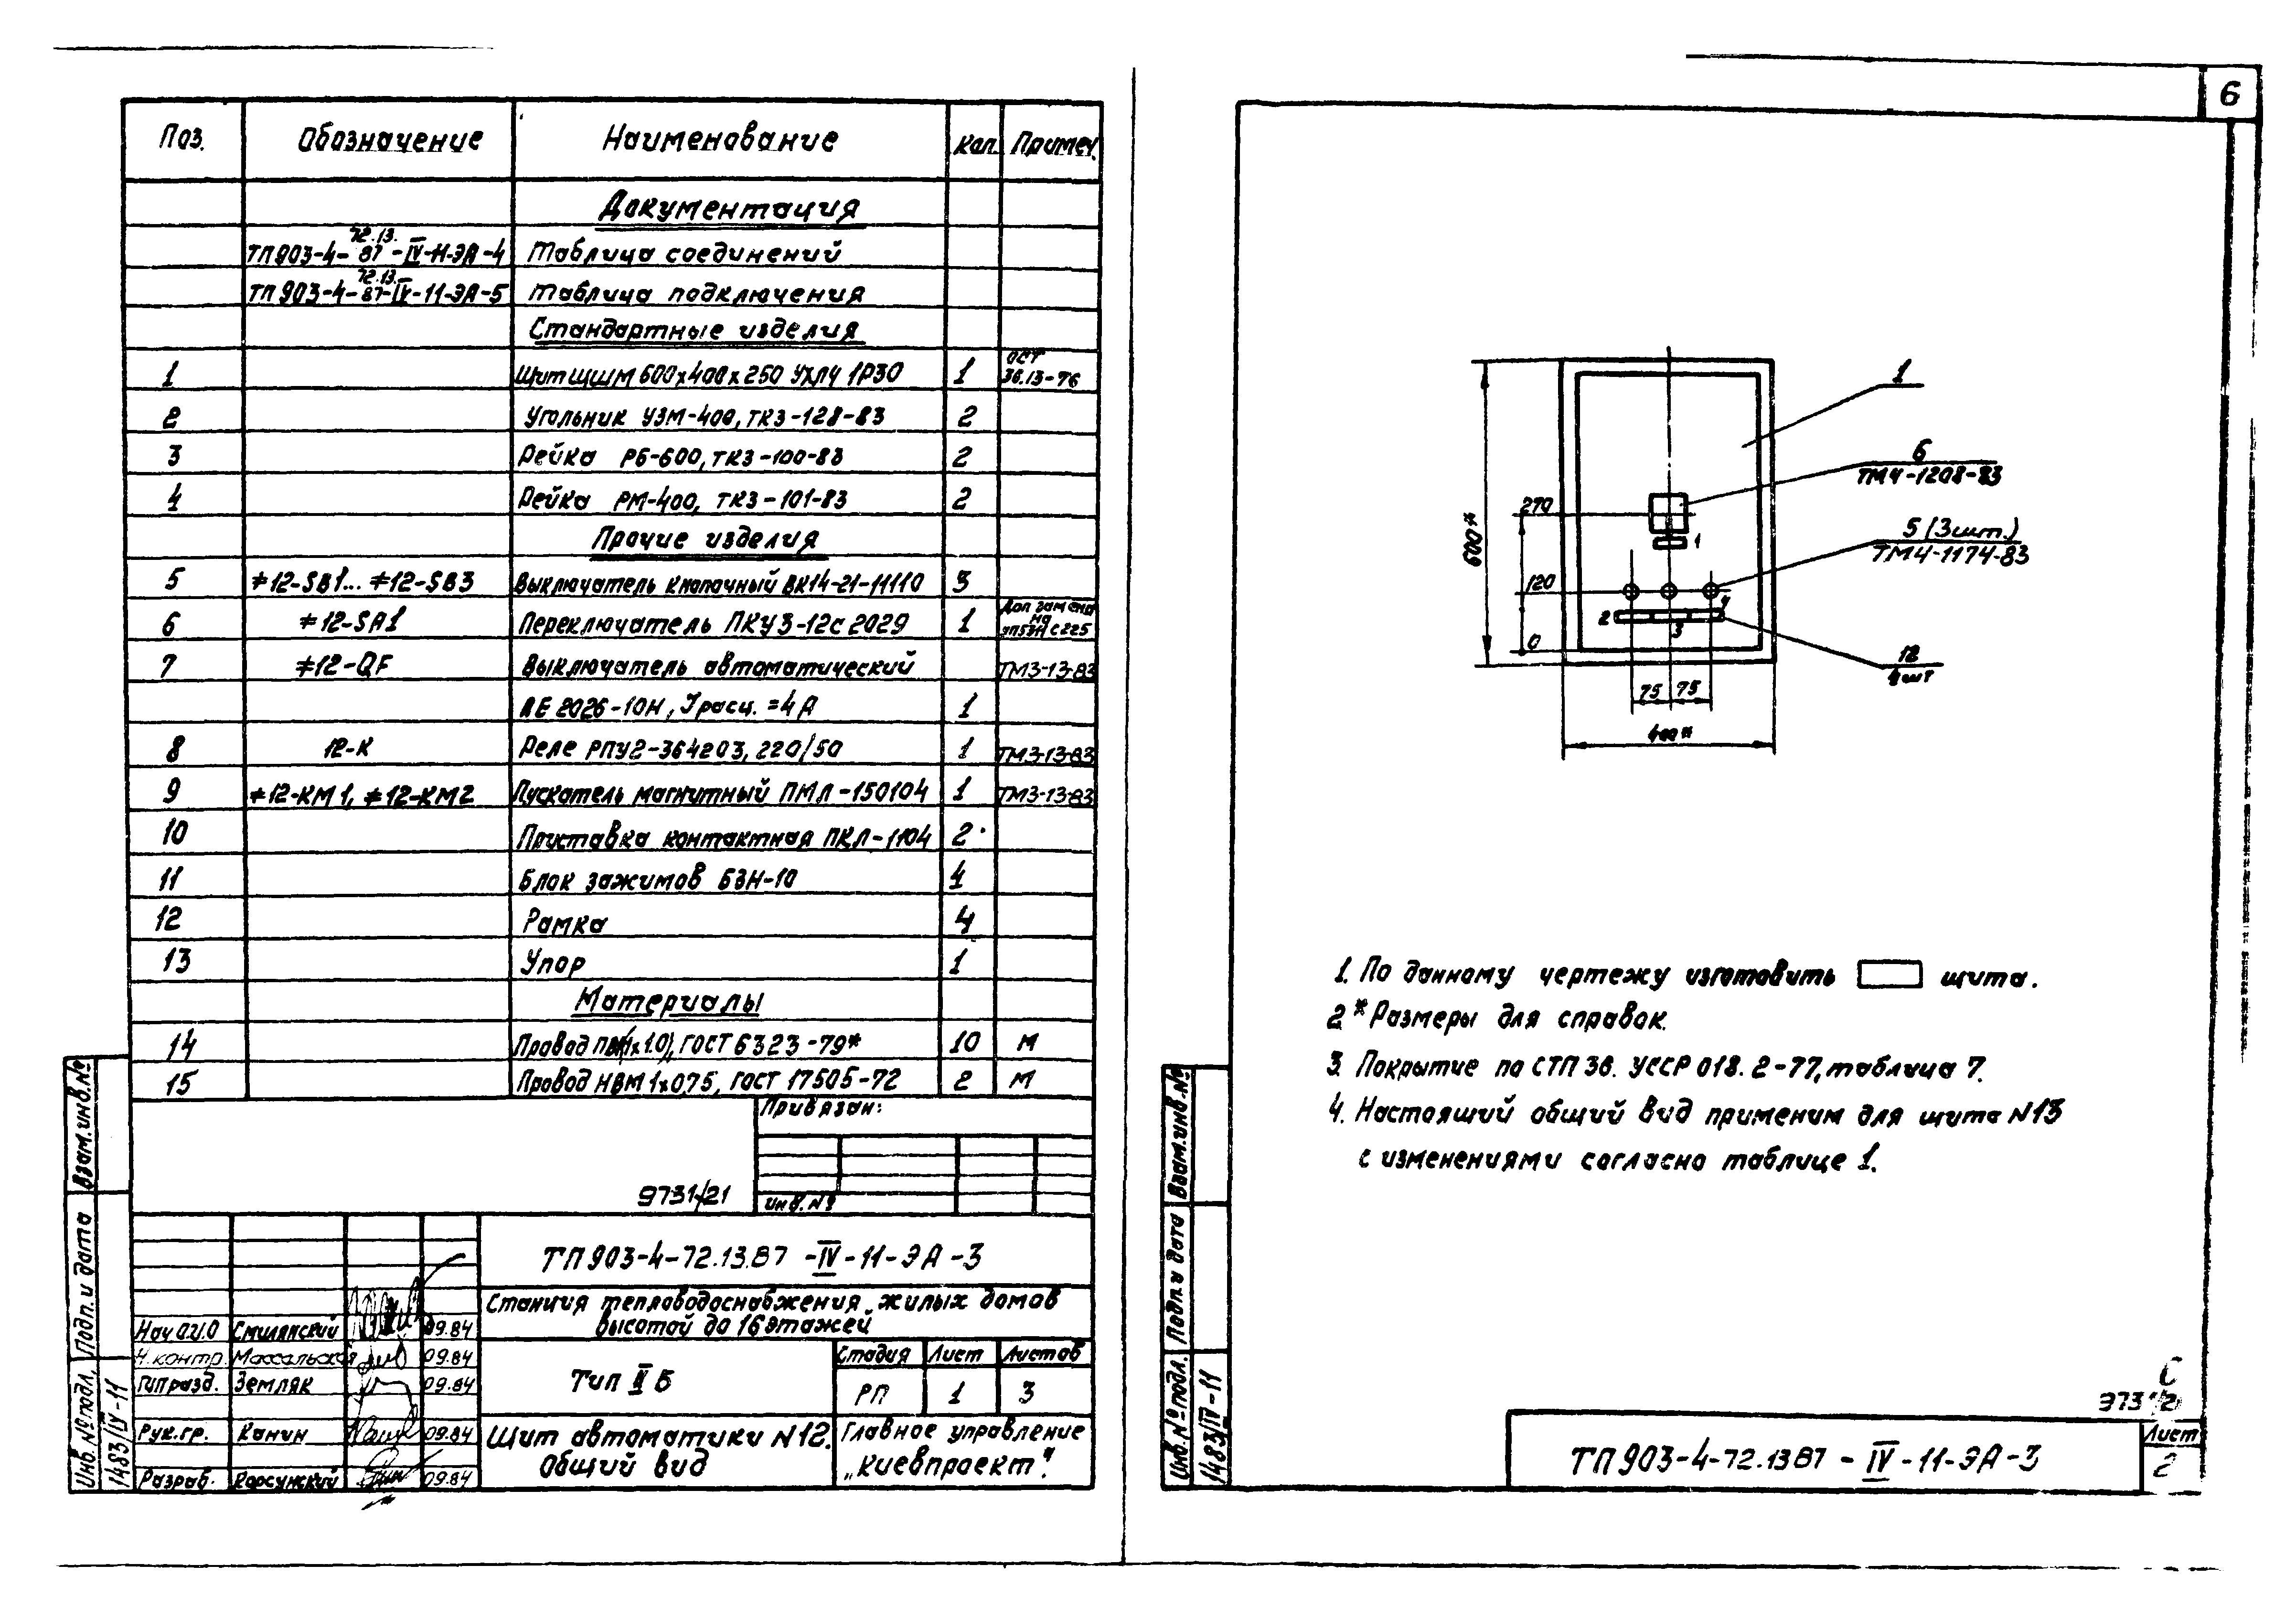 Поз. Обозначение Наименование Кол. Примеч.
Документация
ТП903-4-72.13.87-IV-11-ЭА-4 Таблица соединений
ТП903-4-72.13.87-IV-11-ЭА-5 Таблица подключения
Стандартные изделия
1 Щит ЩШМ 600х400х250 УХЛ4 1Р30 1 ОСТ 36.13-76
2 Угольник УЗМ-400, ТК3-128-83 2
3 Рейка РБ-600, ТК3-100-83 2
4 Рейка РМ-400, ТК3-101-83 2
Прочие изделия
5 ≠12-SB1... ≠12-SB3 Выключатель кнопочный ВК14-21-11110 3
6 ≠12-SA1 Переключатель ПКУ3-12с2029 1 Доп замена на УП5311 С225
7 ≠12-QF Выключатель автоматический ТМ3-13-83
АЕ 2026-10Н, Iрасц. =4А 1
8 12-К Реле РПУ2-364203, 220/50 1 ТМ3-13-83
9 ≠12-КМ1, ≠12-КМ2 Пускатель магнитный ПМЛ-150104 1 ТМ3-13-83
10 Приставка контактная ПКЛ-1104 2
11 Блок зажимов БЗН-10 4
12 Рамка 4
13 Упор 1
Материалы
14 Провод (1х1.0), ГОСТ 6323-79* 10 м
15 Провод НВМ 1х0,75, ГОСТ 17505-72 2 м
Привязан:
9731/21
инв. №
ТП903-4-72.13.87-IV-11-ЭА-3
Станция тепловодоснабжения жилых домов
высотой до 16 этажей
Нач О.И.О Смилянский 09.84
Н. контр. Массальская 09.84
Гип разд. Земляк 09.84
Рук.гр. Канин 09.84
Разраб. Корсунский 09.84
Тип II Б
Стадия Лист Листов
РП 1 3
Щит автоматики N12.
Общий вид
Главное управление
„Киевпроект".
Взам.инв.№
Подп. и дата
Инв.№подл.
1483/IV-11
6
1
6
ТМ4-1208-83
5 (3шт.)
ТМ4-1174-83
12
4 шт
600*
270
120
0
1
2
3
4
75 75
400*
1. По данному чертежу изготовить щита.
2 * Размеры для справок.
3. Покрытие по СТП 36. УССР 018. 2-77, таблица 7.
4. Настоящий общий вид применим для щита N13
с изменениями согласно таблице 1.
Взам.инв.№
Подп. и дата
Инв.№подл.
1483/IV-11
С
9731/21
ТП903-4-72.13.87-IV-11-ЭА-3
Лист
2